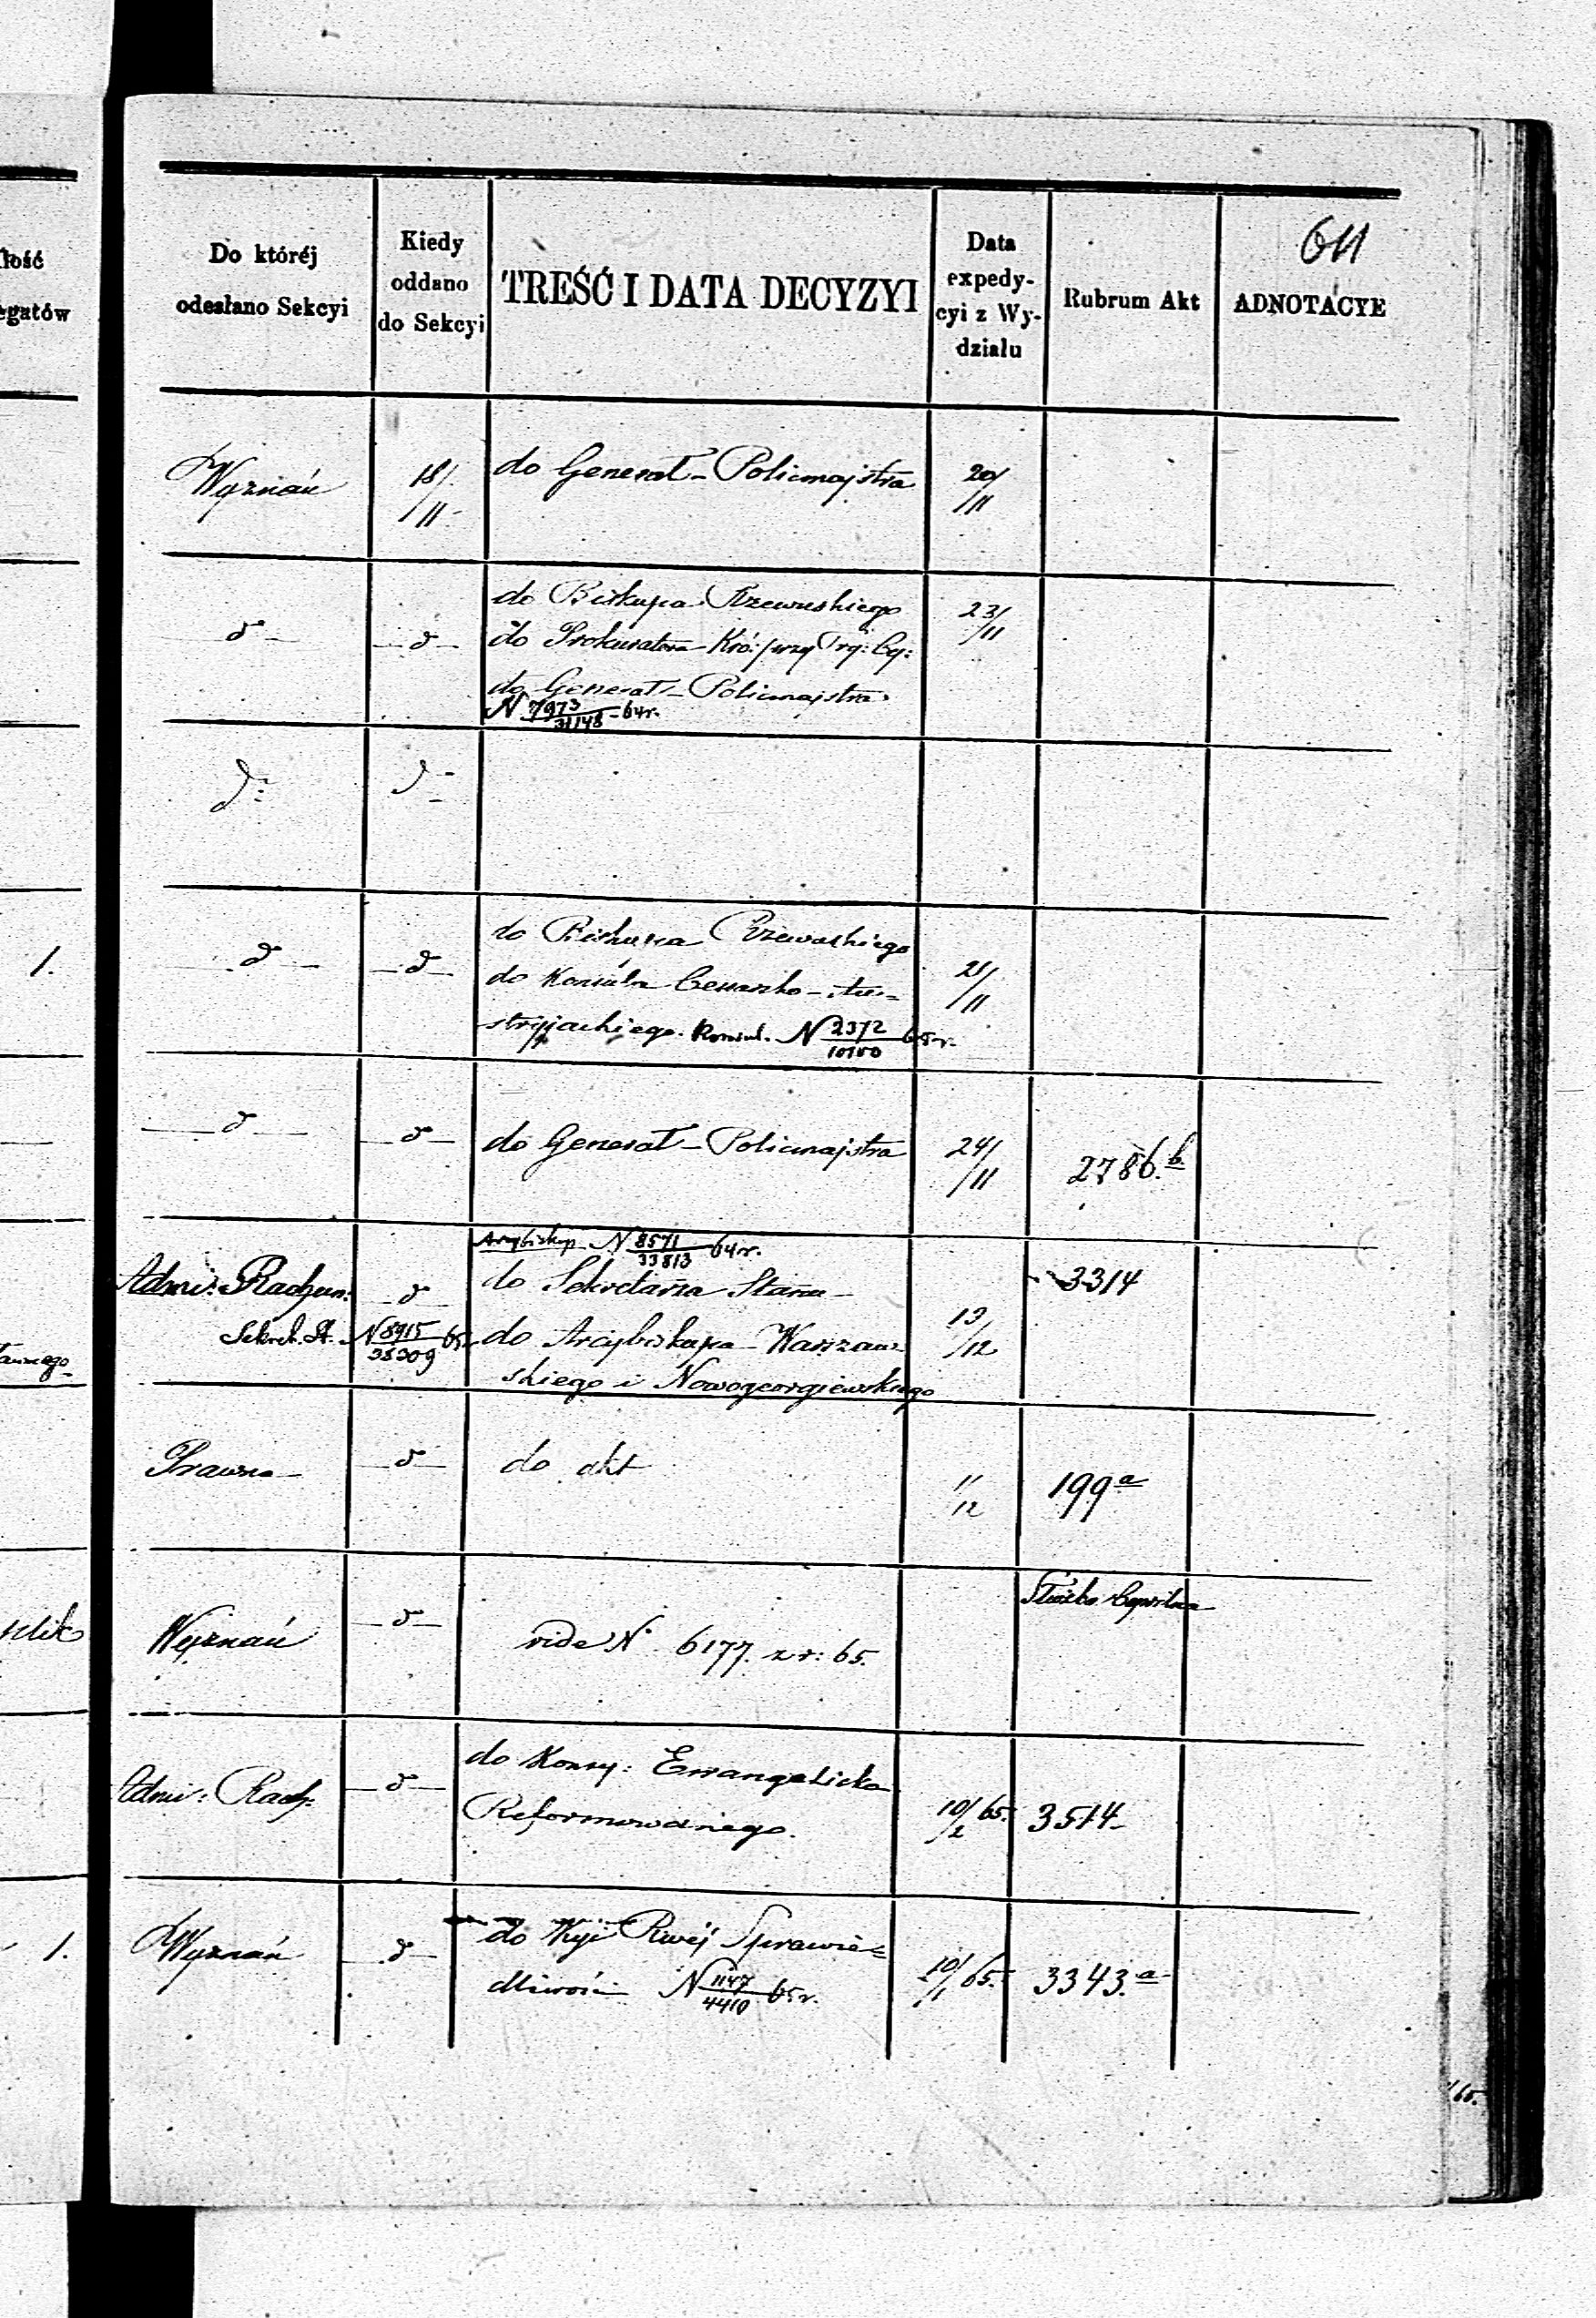 611
Do któréj
odesłano Sekcyi
Kiedy
oddano
do Sekcyi
TREŚĆ I DATA DECYZYI
Data
expedy-
cyi z Wy-
działu
Rubrum Akt
ADNOTACYE
łość
egatów
Wyznań
18/11
do Generał-Policmajstra
20/11
d°
d°
do Biskupa Rzewuskiego
do Prokuratora Kró: przy Try: Cy:
do Generał-Policmajstra
N 7973/31148 - 64 r.
23/11
d°
d°
1.
d°
d°
do Biskupa Rzewuskiego
do Konsula Cesarsko-Au-
stryjackiego. N 2372/10100 65 r.
21/11
d°
d°
do Generał-Policmajstra
24/11
2786.b
Admi: Rachun:
Sekret. St.
d°
N 8915/38309 65
Arcybiskup N 8571/33813 64 r.
do Sekretarza Stanu
do Arcybiskupa Warszaw-
skiego i Nowogeorgiewskiego
13/12
3314
Prawna
d°
do akt
11/12
199 a
Wyznań
d°
vide N° 6177. z r: 65.
Służba Cywilna
Admi: Rach:
d°
do Konsy: Ewangelicko
Reformowanego.
10/2 65.
3514
1.
Wyznań
d°
do Kyi Rwéj Sprawie-
dliwości N 1147/4410 65 r.
10/1 65.
3343.a
65.